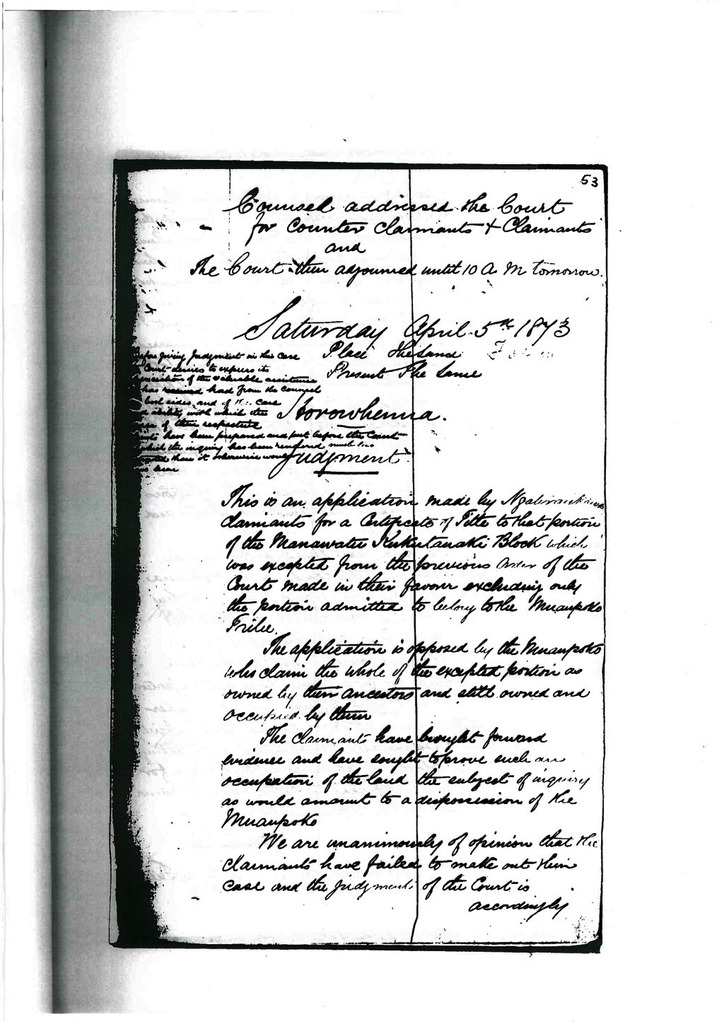 53
Counsel addressed the Court
for Counter Claimants & Claimants
and
The Court then adjourned until 10 A M tomorrow.
Saturday April 5th 1873
Place
Present The Same
before giving Judgment in this Case
Court desires to express its
of the valuable assistance
has received had from the Counsel
both sides and of the care
ability with which the
of their respective
have been prepared and put before the Court
which the inquiry has been rendered much less
than it otherwise would
been
Horowhenua.
Judgment
This is an application made by
Claimants for a Certificate of Title to that portion
of the Manawatu Kukutauaki Block which
was excepted from the previous Order of the
Court made in their favour excluding only
the portion admitted to belong to the Muaupoko
Tribe.
The application is opposed by the Muaupoko
who claim the whole of the excepted portion as
owned by their ancestors and still owned and
occupied by them
The Claimants have brought forward
evidence and have sought to prove such an
occupation of the land the subject of inquiry
as would amount to a dispossession of the
Muaupoko
We are unanimously of opinion that the
Claimants have failed to make out their
case and the Judgment of the Court is
accordingly